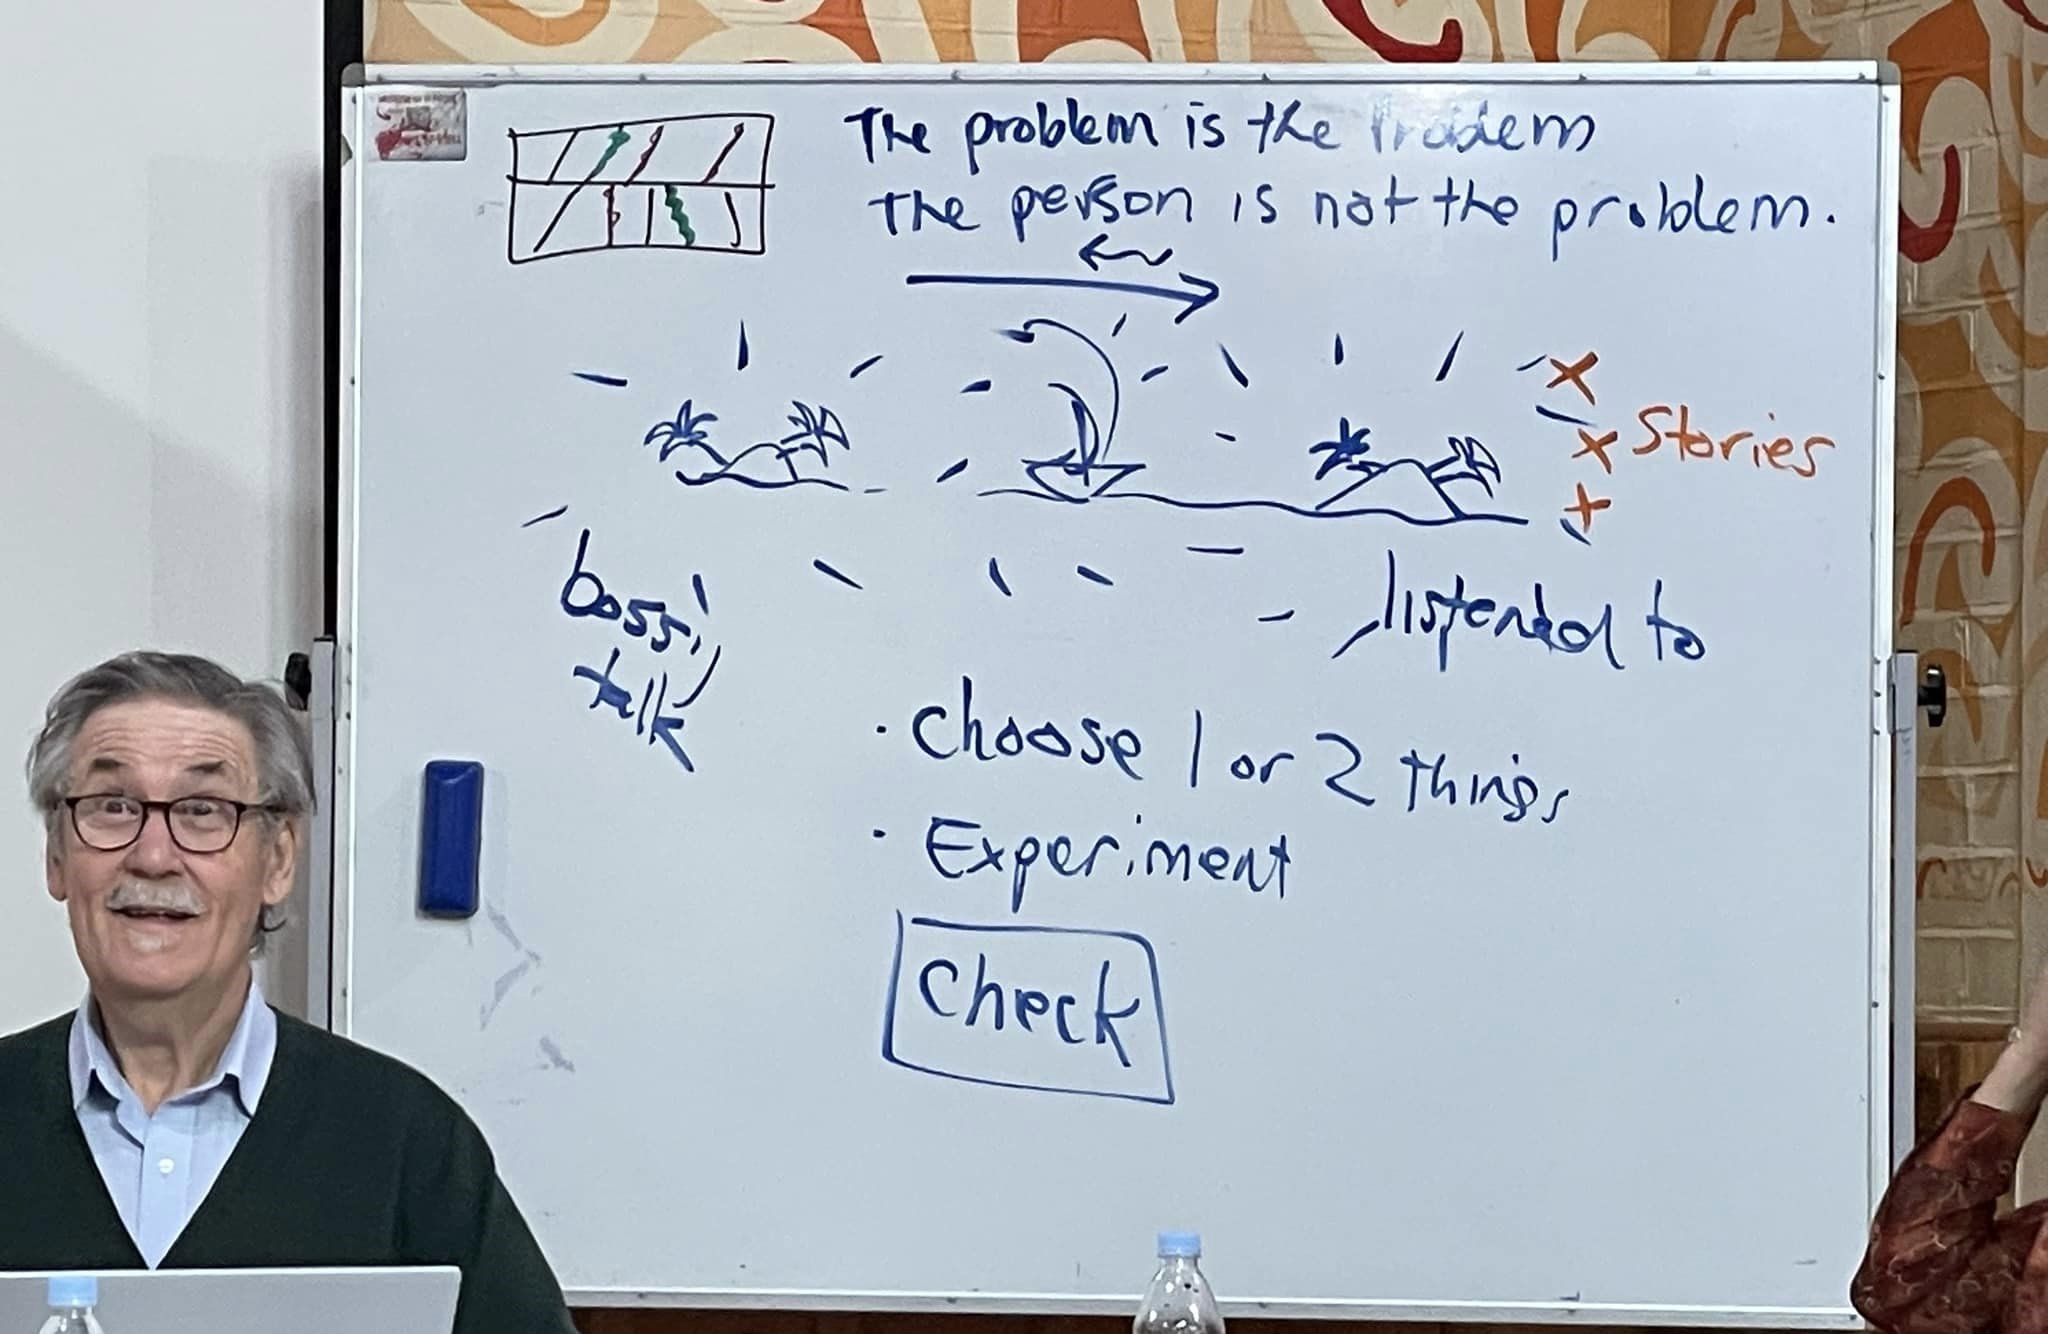 The problem is the Problem
The person is not the problem.
Stories
boss!
talk
listended to
· choose 1 or 2 things
· Experiment
check